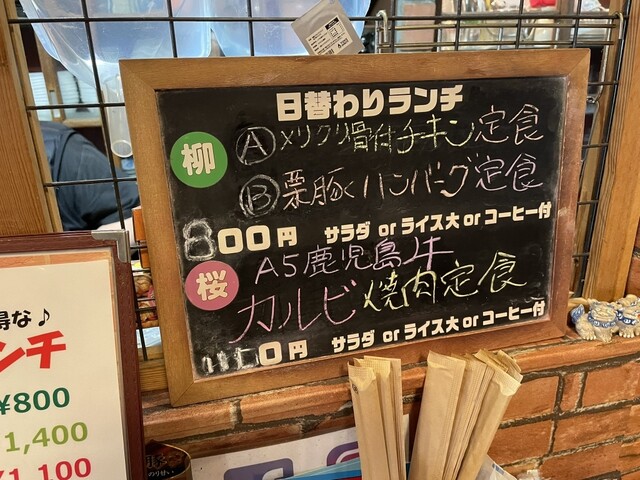 日替わりランチ
柳 Ⓐメリクリ骨付チキン定食
Ⓑ栗豚くハンバーグ定食
800円 サラダ or ライス大 or コーヒー付
桜 A5鹿児島牛
カルビ焼肉定食
1150円 サラダ or ライス大 or コーヒー付
得な♪
ンチ
¥800
1,400
¥1,100